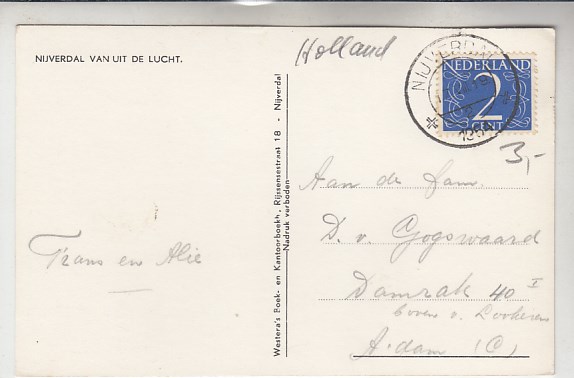 NIJVERDAL VAN UIT DE LUCHT.
Holland
NIJVERDAL
NEDERLAND
2
CENT
3,-
Westera's Boek- en Kantoorboekh., Rijssensestraat 18 - Nijverdal
Nadruk verboden
Aan de fam.
D. v. Gogswaard
Damrak 40 I
boven v.
A'dam (C)
Frans en Alie